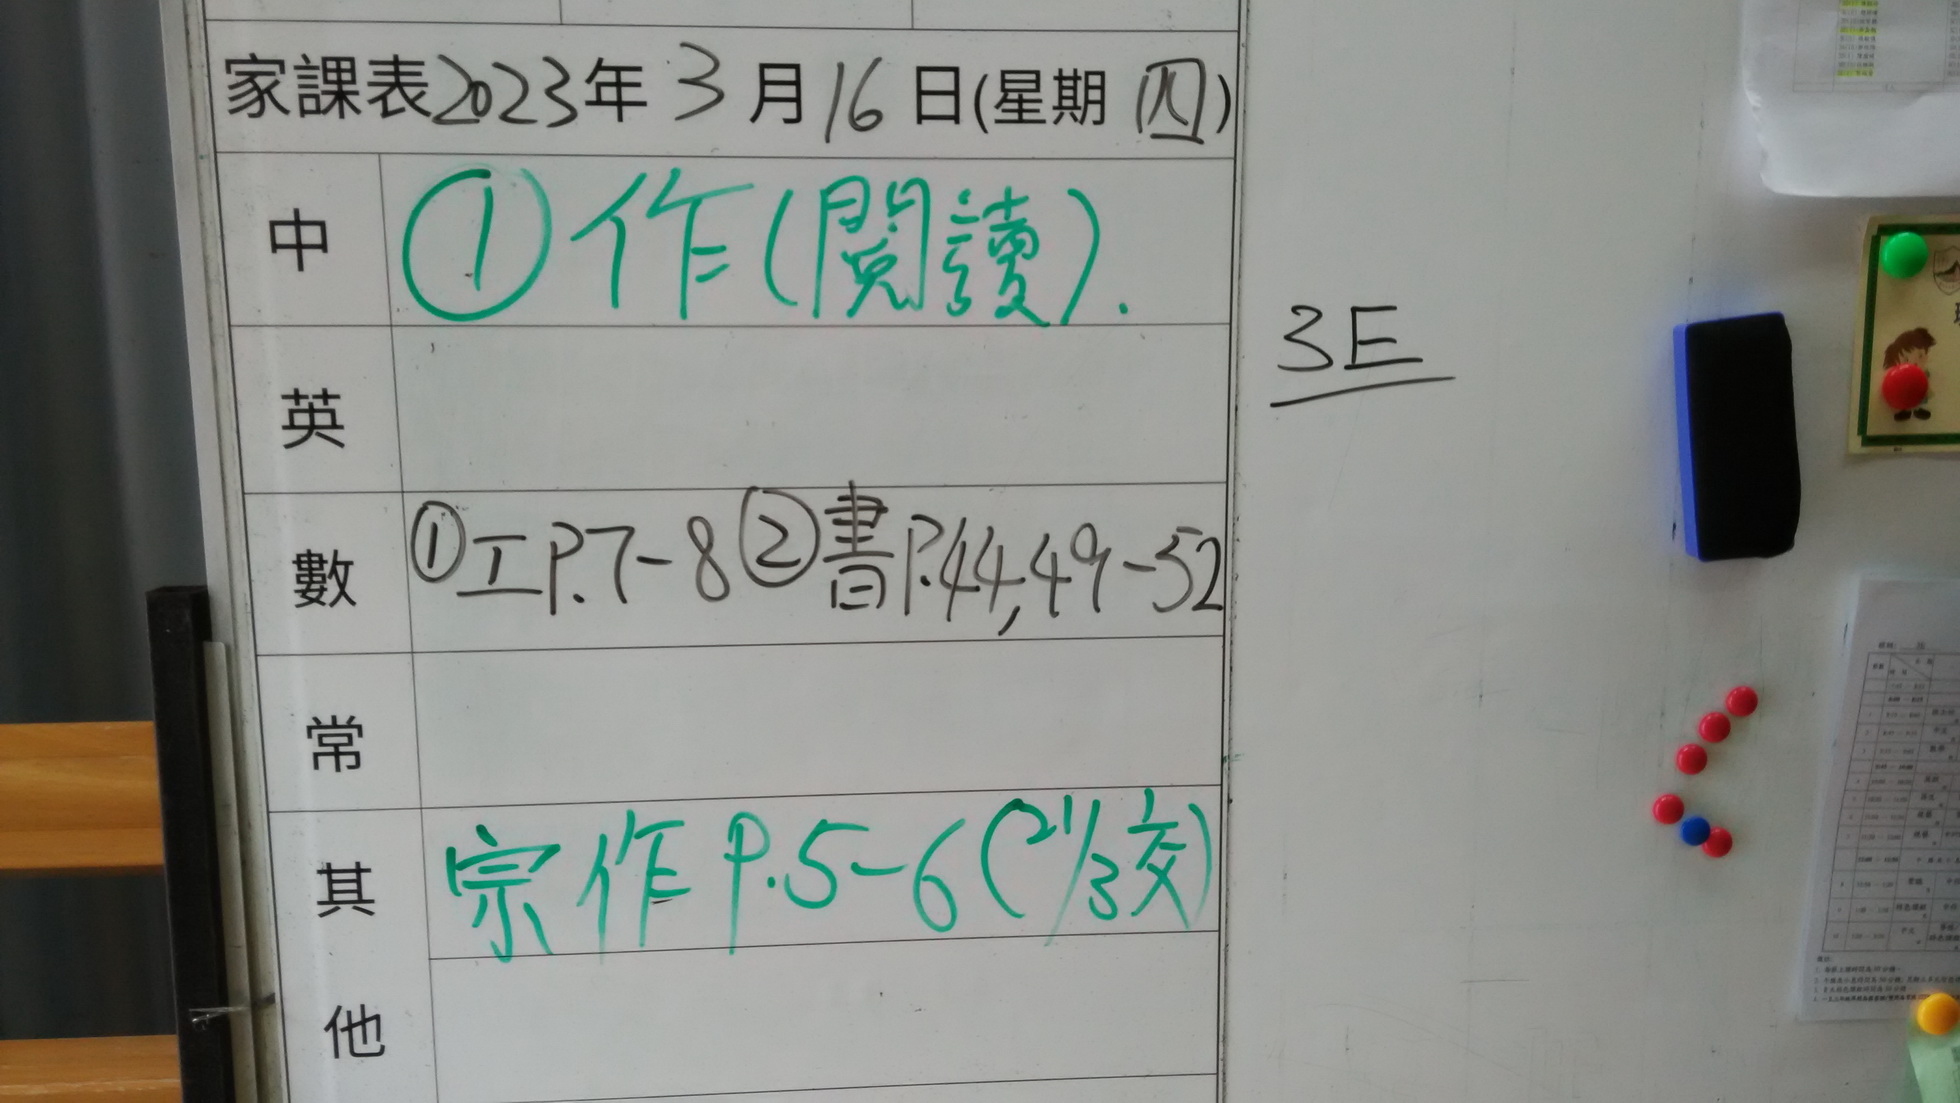 家課表2023年3月16日(星期四)
中 ①作(閱讀).
英
數 ①工P.7-8②書P.44,49-52
常
其他 宗作P.5-6(21/3交)
3E